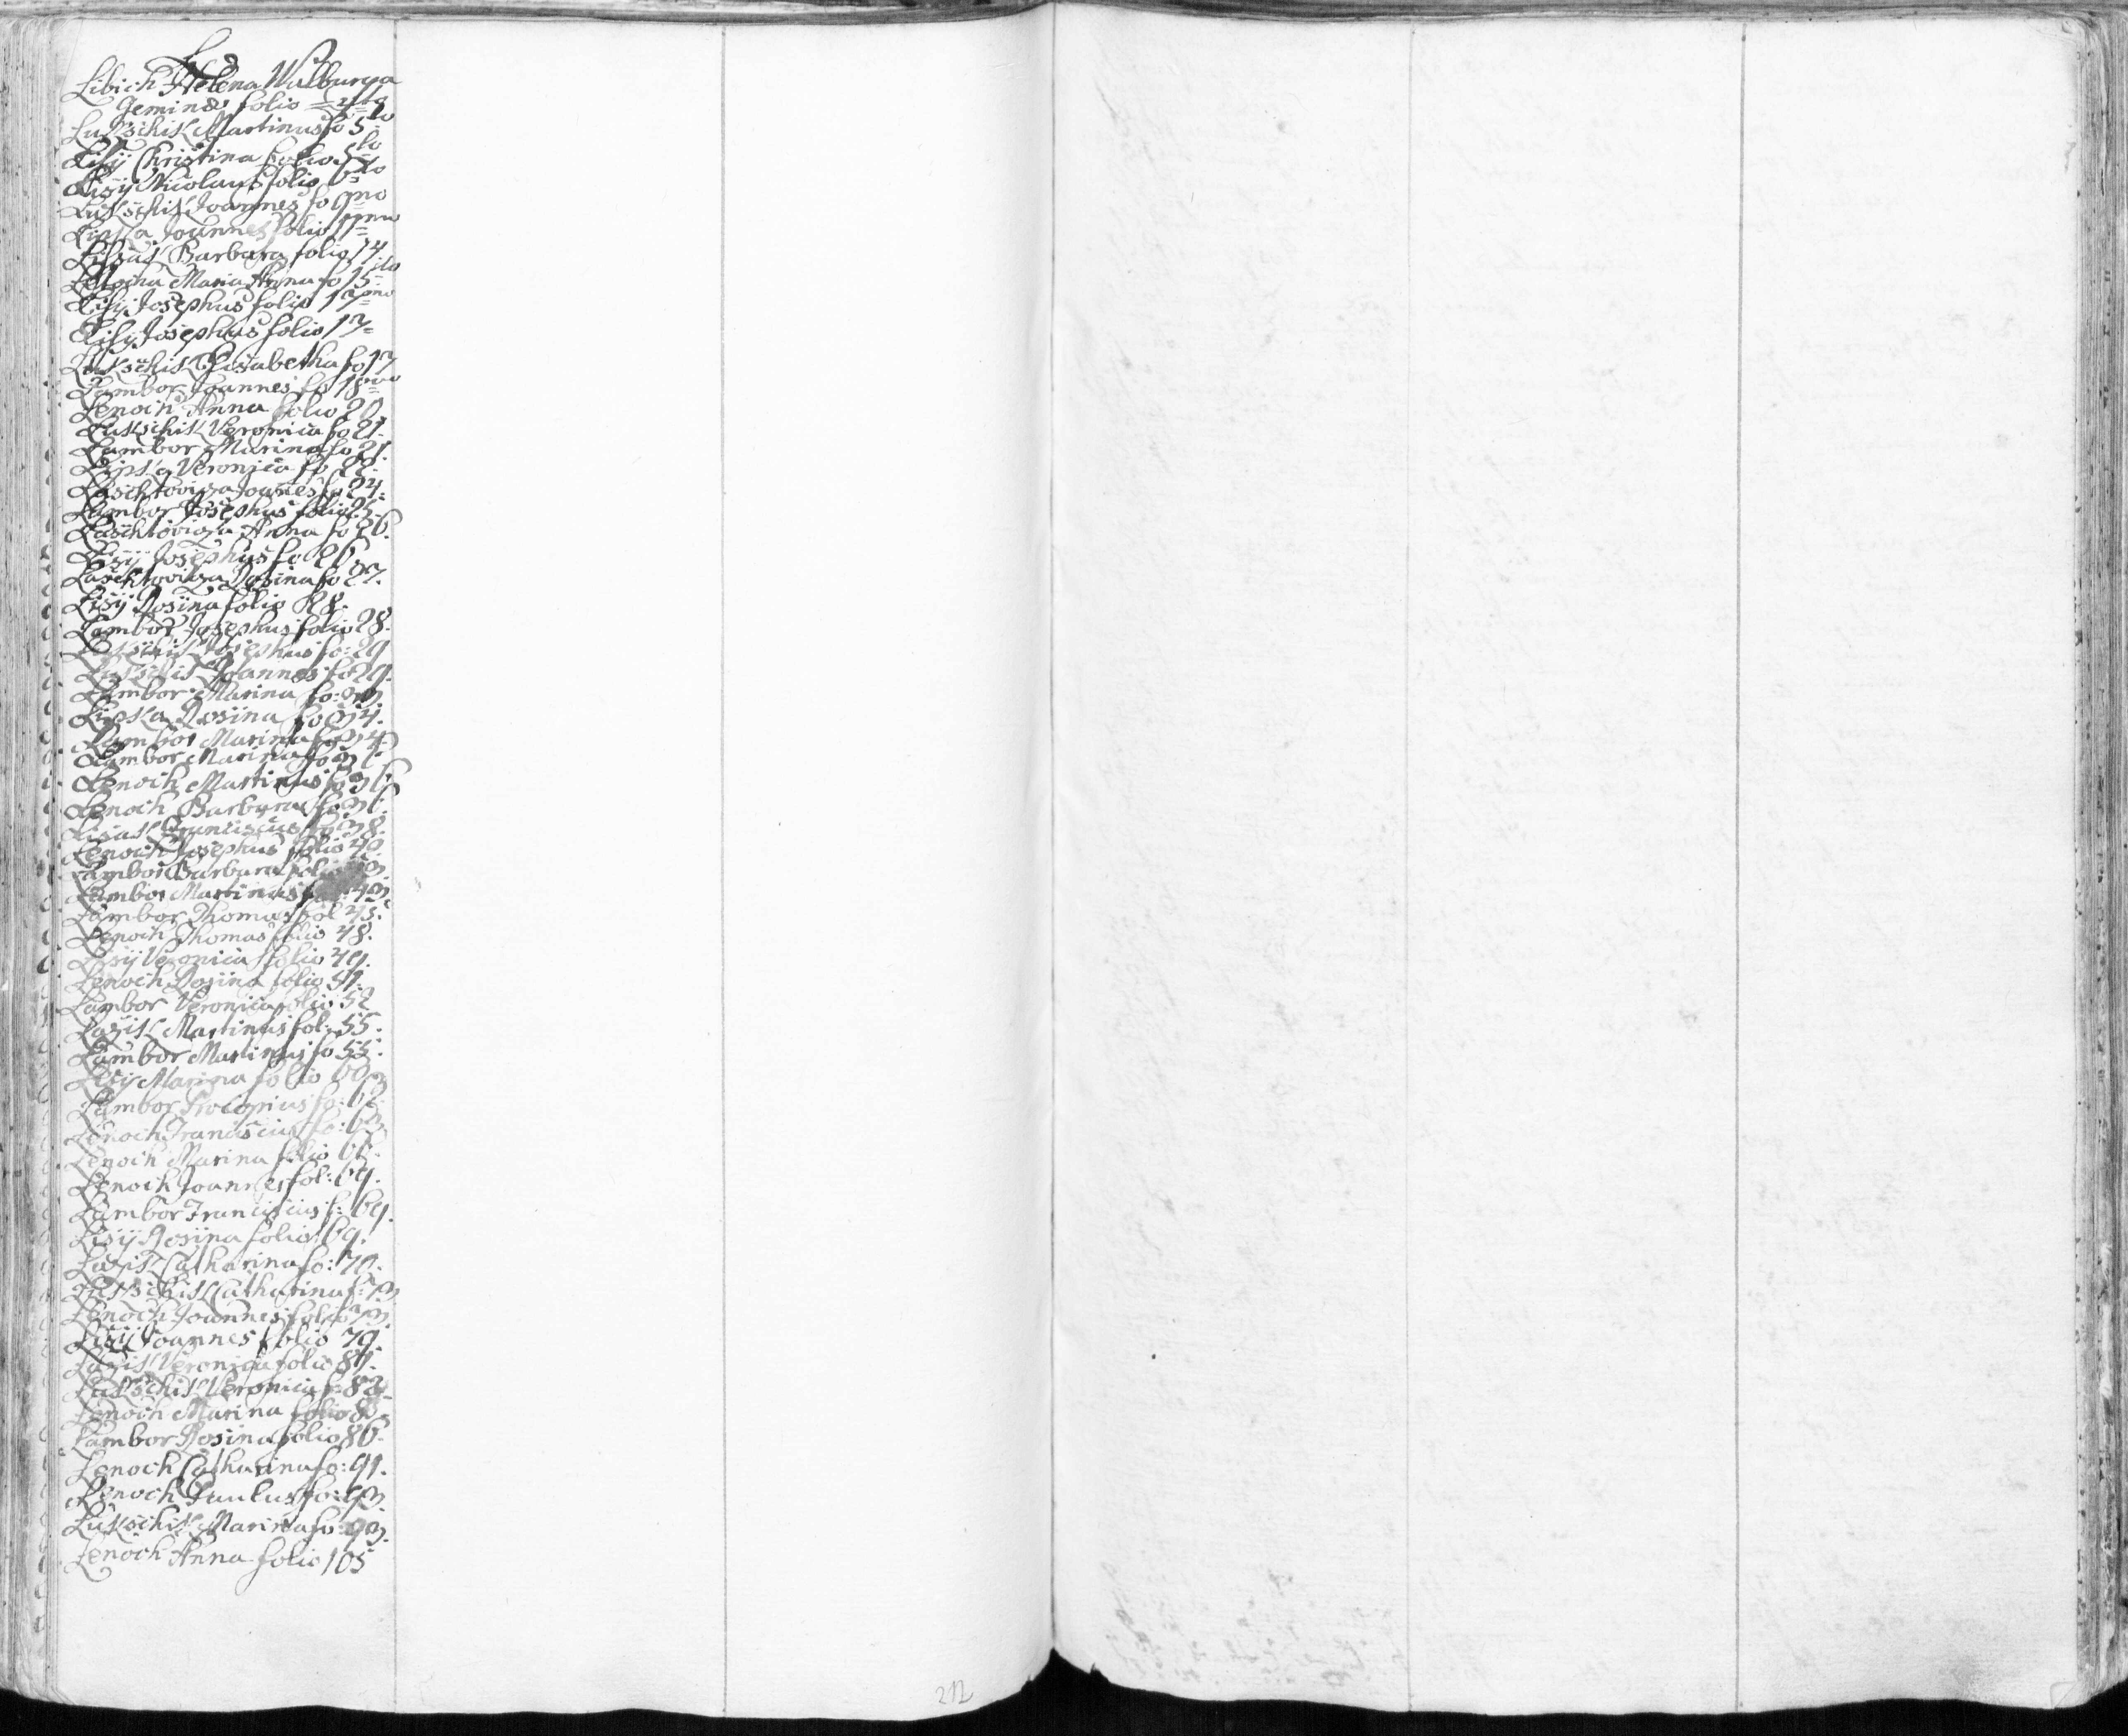 L
Libich Helena Walburga
Geminae folio = 4to
Lukschik Martinus fo 5to
Lisÿ Christina folio 5to
Lisÿ Nicolaus folio 6to
Lukschik Joannes fo 9no
Lipska Joannes folio 11mo
Barbara folio 14
Maria Anna fo 15to
Lisÿ Josephus folio 17mo
Lisÿ Josephus folio 17=
Lukschik Elisabetha fo 17
Lambor Joannes fo 18vo
Lenoch Anna folio 20
Lukschik Veronica fo 21.
Lambor Marina fo 21.
Lipska Veronica fo 22.
Laschtoviza Joanes fo 24.
Lambor Josephus folio 25.
Laschtoviza Anna fo 26.
Lisÿ Josephus fo 26
Laschtoviza Rosina fo 27.
Lisÿ Rosina folio 28.
Lambor Josephus folio 28.
Lukschik Josephus fo: 29
Lukschik Joannes fo 29.
Lambor Marina fo: 33.
Lipska Rosina fo 34.
Lambor Marina fo 34.
Lambor Marina fo 36
Lenoch Martinus fo 36.
Lenoch Barbara fo 36.
Lisak Franciscus fo 38.
Lenoch Josephus folio 40.
Lambor Barbara folio
Lambor Martinus 43.
Lambor Thomas fol 45.
Lenoch Thomas folio 48.
Lisÿ Veronica folio 49.
Lenoch Rosina folio 51.
Lambor Veronica folio 52
Lazik Martinus fol: 55.
Lambor Martinus fo 55.
Lisÿ Marina folio 60
Lambor Procopius fo: 62.
Lenoch Franciscus fo: 63.
Lenoch Marina folio 66.
Lenoch Joannes fol: 69.
Lambor Franciscus f: 69.
Lisÿ Rosina folio 69.
Lazik Catharina fo: 70.
Lukschik Catharina f: 73.
Lenoch Joannes folio 73.
Lisÿ Joannes folio 79.
Lazik Veronica folio 81.
Lukschik Veronica f: 82.
Lenoch Marina folio
Lambor Rosina folio 86.
Lenoch Catharina fo: 91.
Lenoch Paulus fo: 93.
Lukschik Marina fo: 93.
Lenoch Anna folio 105
212